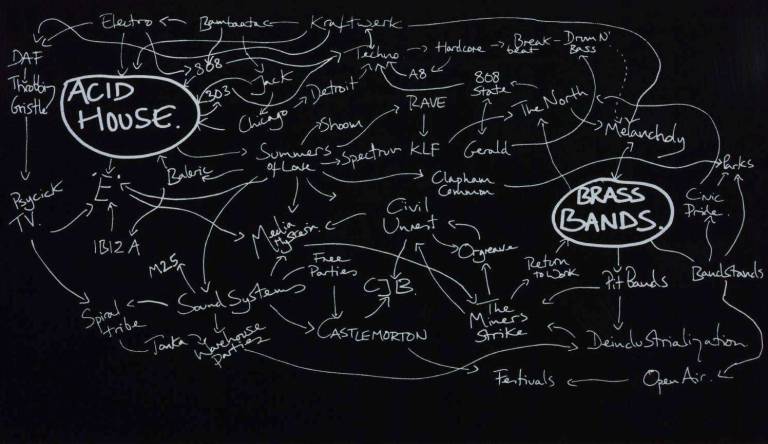 Electro
Bambaata
Kraftwerk
DAF
Throbbing
Gristle
808
Techno
Hardcore
Break-
beat
Drum N'
Bass
ACID
HOUSE.
303
Jack
Detroit
A8
808
State
Chicago
RAVE
The North
Melancholy
Shoom
Summers
of Love
Spectrum
KLF
Gerald
Parks
Baleric
Clapham
Common
Psycick
TV.
'E'
BRASS
BANDS.
Civic
Pride.
IBIZA
Media
Hysteria.
Civil
Unrest
Orgreave
Return
to Work
M25
Free
Parties
CJB.
Pit Bands
Bandstands
Spiral
Tribe
Sound Systems
The
Miners
Strike
Tonka
Warehouse
Parties
CASTLEMORTON
Deindustrialization
Festivals
Open Air.